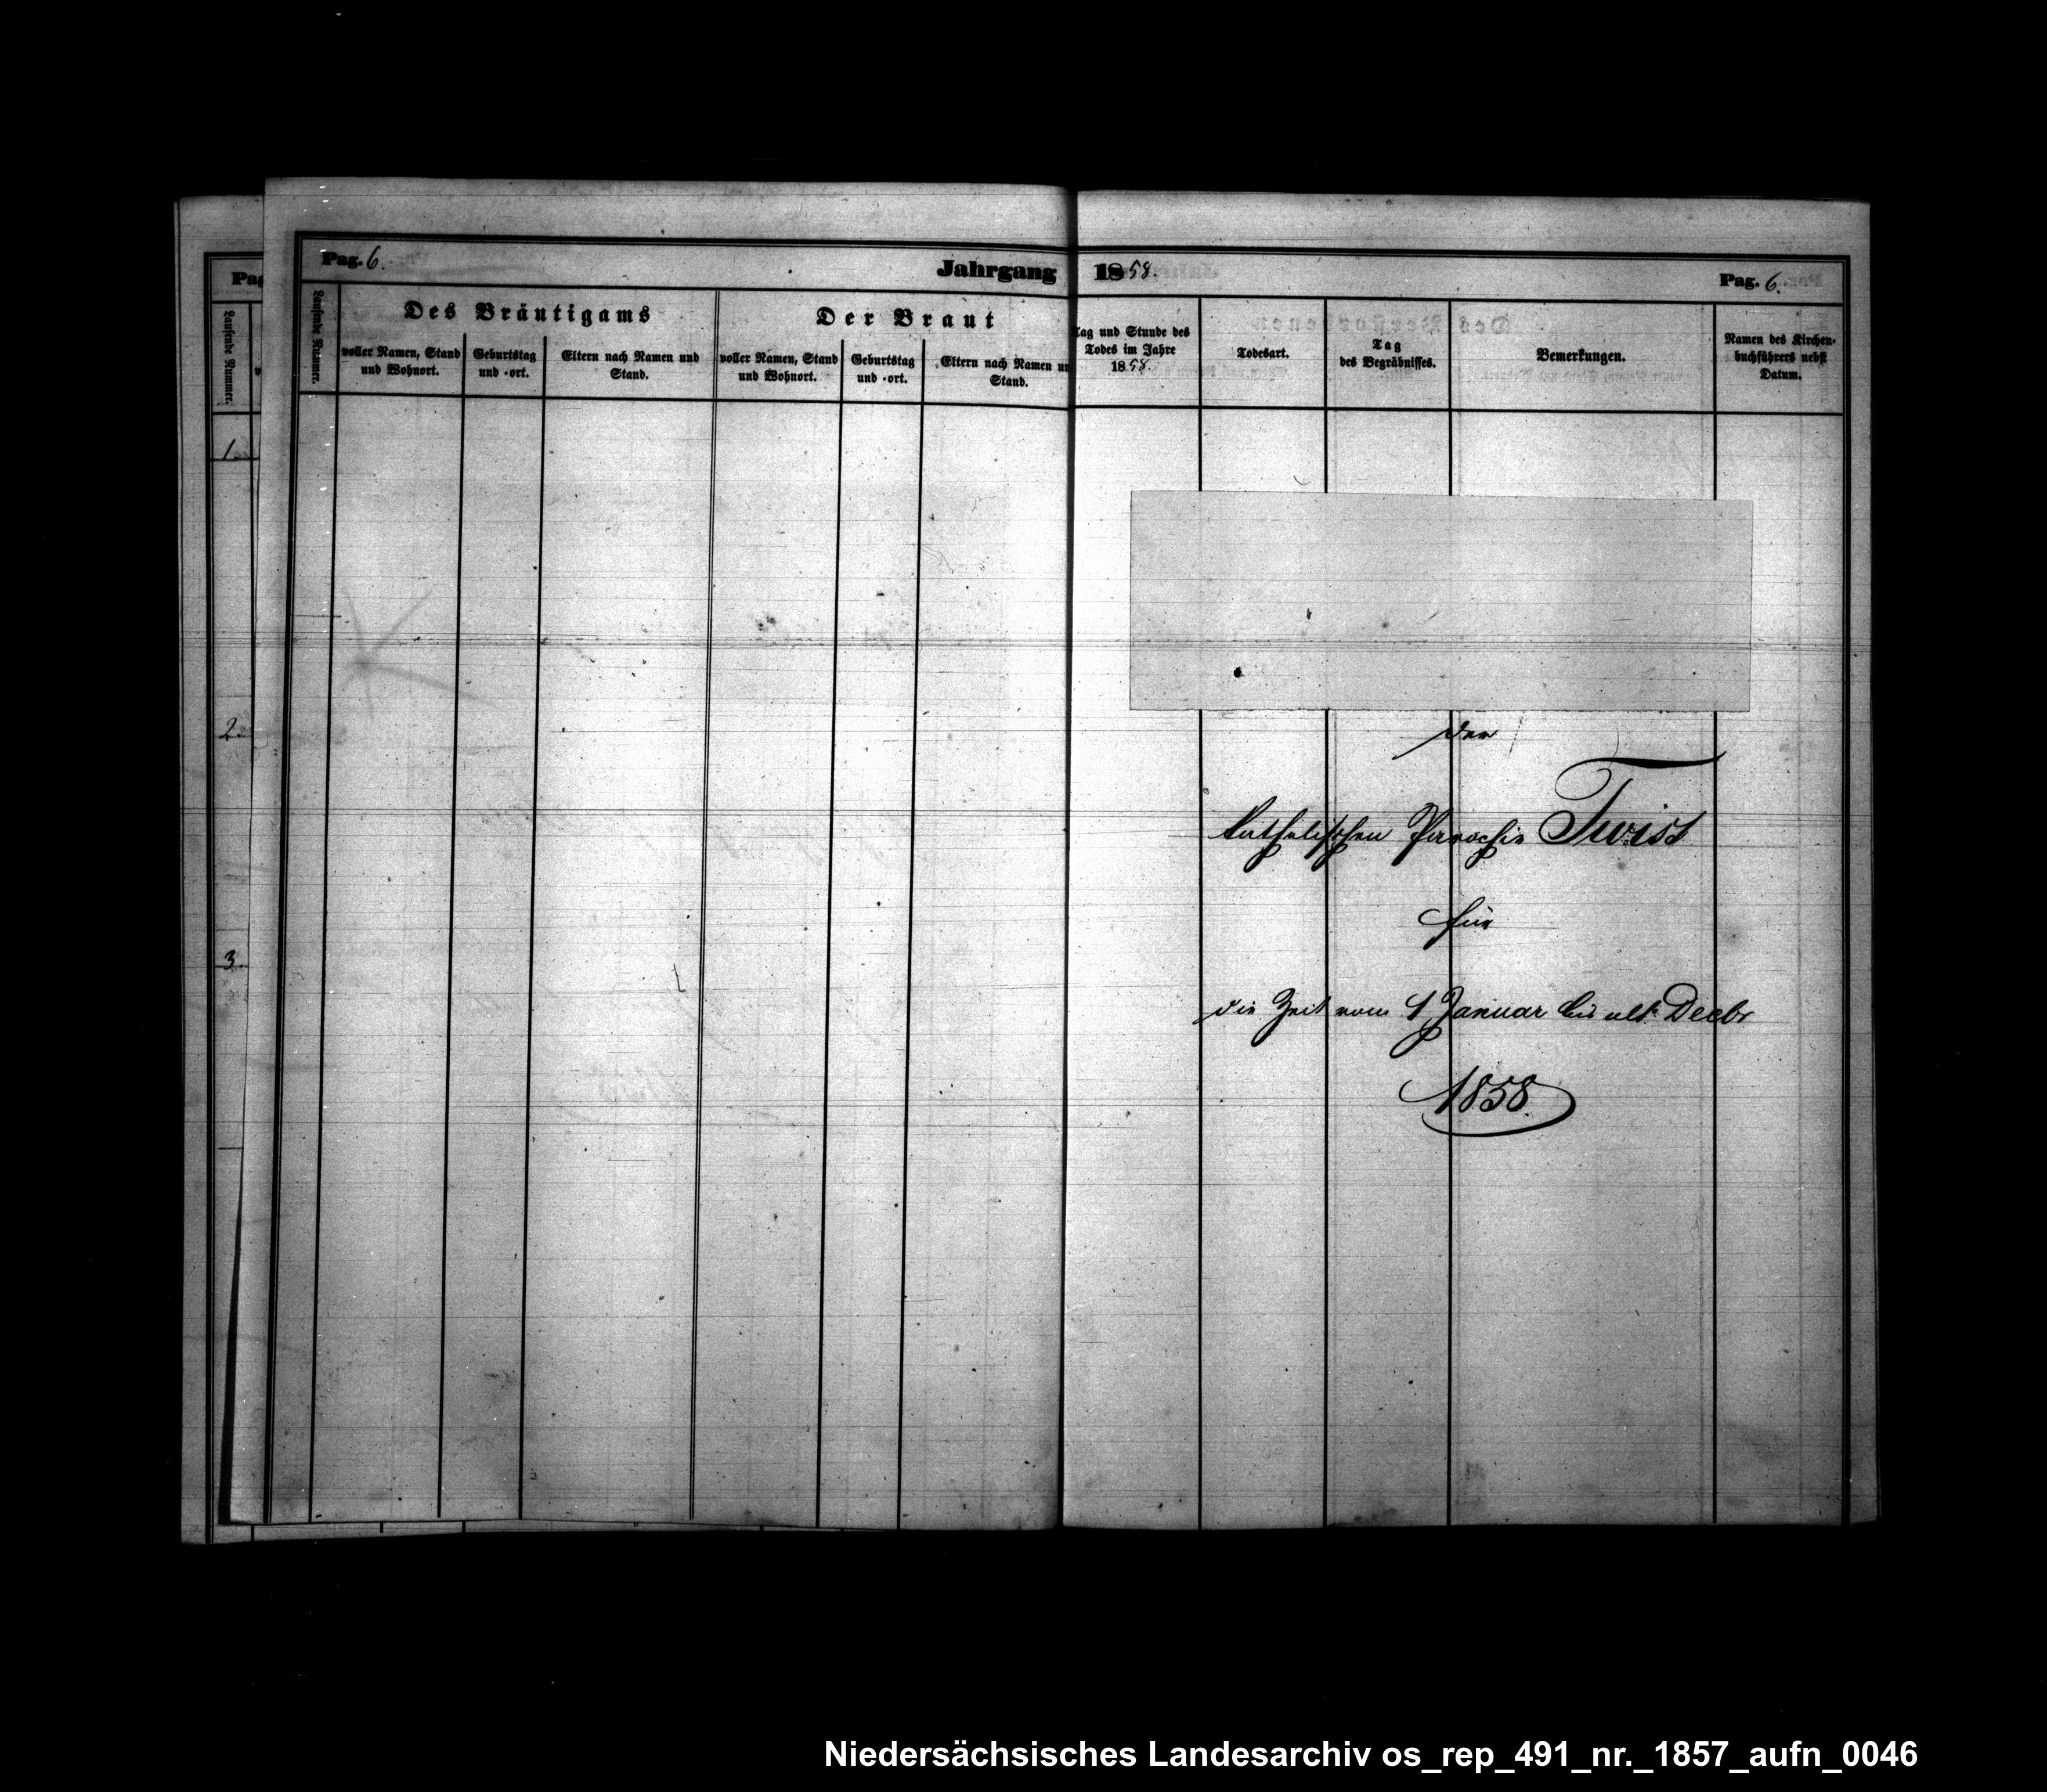 Pag.
Laufende Nummer.
1
2.
3.
Pag. 6.
Jahrgang 1858.
Pag. 6.
Laufende Nummer.
Des Bräutigams
Der Braut
voller Namen, Stand
und Wohnort.
Geburtstag
und -ort.
Eltern nach Namen und
Stand.
voller Namen, Stand
und Wohnort.
Geburtstag
und -ort.
Eltern nach Namen un
Stand.
Tag und Stunde des
Todes im Jahre
1858.
Todesart.
Tag
des Begräbnisses.
Bemerkungen.
Namen des Kirchen-
buchführers nebst
Datum.
der
katholischen Parochie Twist
für
die Zeit vom 1 Januar bis ult. Decbr
1858.
Niedersächsisches Landesarchiv os_rep_491_nr._1857_aufn_0046